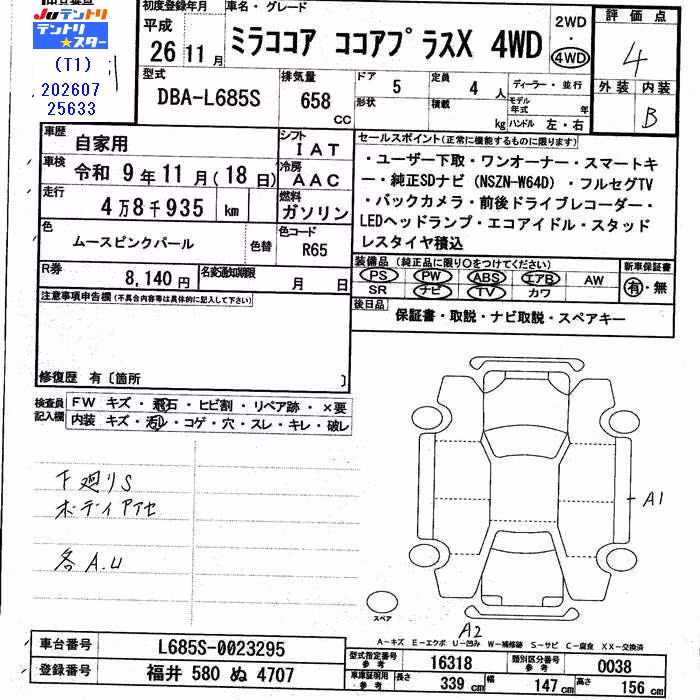 Juテントリ
テントリ★スター
(T1)
202607
25633
初度登録年月
平成 26 11月
車名・グレード
ミラココア ココアプラスX 4WD
2WD・4WD
評価点
4
外装 内装
B
型式
DBA-L685S
排気量
658 CC
ドア 5
形状
定員 4人
積載 kg
ディーラー・並行
モデル年式 年
ハンドル 左・右
車歴 自家用
シフト IAT
車検 令和 9年 11月(18日)
冷房 AAC
走行 4万8千935 km
燃料 ガソリン
色 ムースピンクパール 色替
色コード R65
R券 8,140円
名変通知期限 月 日
セールスポイント(正常に機能するものに限ります)
・ユーザー下取・ワンオーナー・スマートキ
ー・純正SDナビ(NSZN-W64D)・フルセグTV
・バックカメラ・前後ドライブレコーダー・
LEDヘッドランプ・エコアイドル・スタッド
レスタイヤ積込
装備品(純正品に限り○をつけてください)
PS PW ABS エアB AW
SR ナビ TV カワ
新車保証書
有・無
後日品 保証書・取説・ナビ取説・スペアキー
注意事項申告欄(不具合内容等は具体的に記入して下さい)
修復歴 有〔箇所 〕
検査員記入欄
FW キズ・飛石・ヒビ割・リペア跡・×要
内装 キズ・汚れ・コゲ・穴・スレ・キレ・破レ
下廻りS
ボディアセ
各A.U
A1
A2
スペア
A-キズ E-エクボ U-凹み W-補修跡 S-サビ C-腐食 XX-交換済
車台番号 L685S-0023295
登録番号 福井 580 ぬ 4707
型式指定番号 参考 16318
類別区分番号 参考 0038
車庫証明用 参考 長さ 339cm 幅 147cm 高さ 156cm